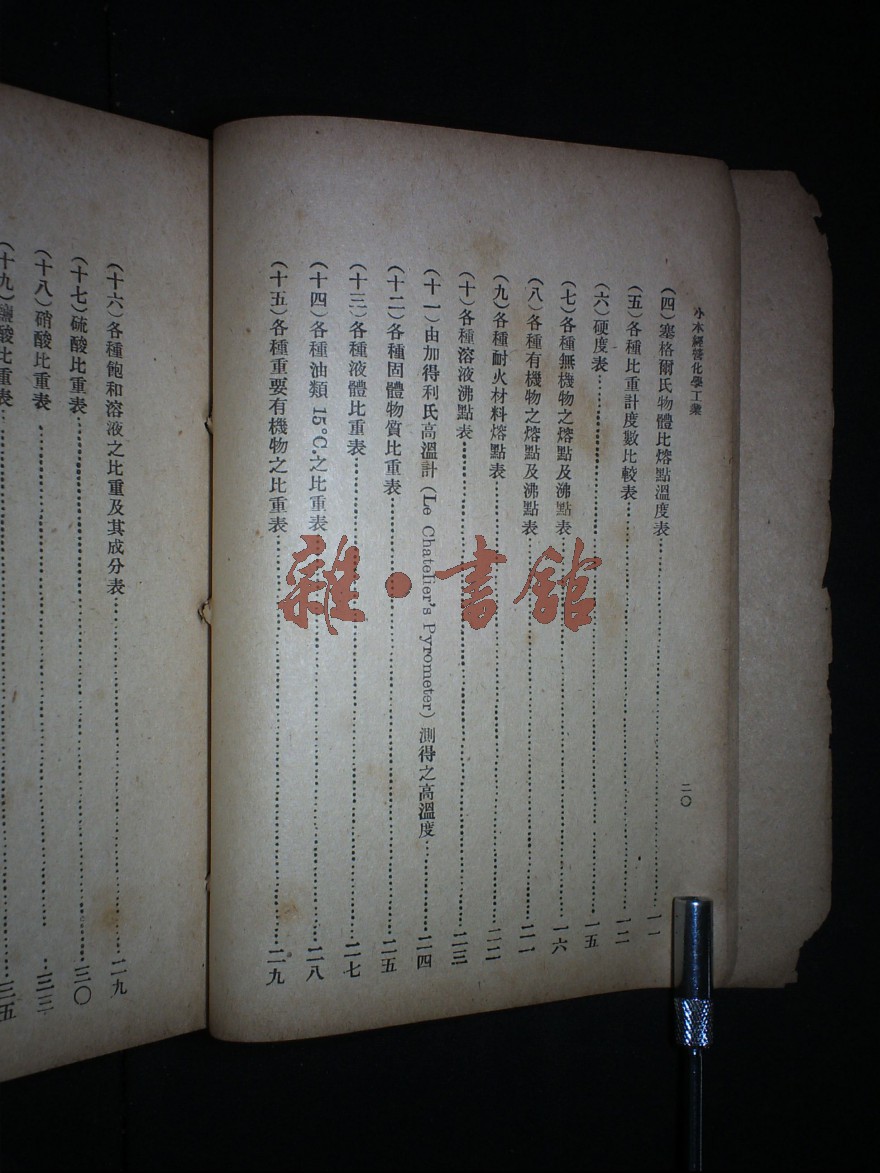 小本經營化學工業
二〇
(四)塞格爾氏物體比熔點溫度表……一一
(五)各種比重計度數比較表……一二
(六)硬度表……一五
(七)各種無機物之熔點及沸點表……一六
(八)各種有機物之熔點及沸點表……二一
(九)各種耐火材料熔點表……二二
(十)各種溶液沸點表……二三
(十一)由加得利氏高溫計(Le Chatelier's Pyrometer)測得之高溫度……二四
(十二)各種固體物質比重表……二五
(十三)各種液體比重表……二七
(十四)各種油類15°C.之比重表……二八
(十五)各種重要有機物之比重表……二九
(十六)各種飽和溶液之比重及其成分表……二九
(十七)硫酸比重表……三〇
(十八)硝酸比重表……三三
(十九)鹽酸比重表……三五
雜·書館